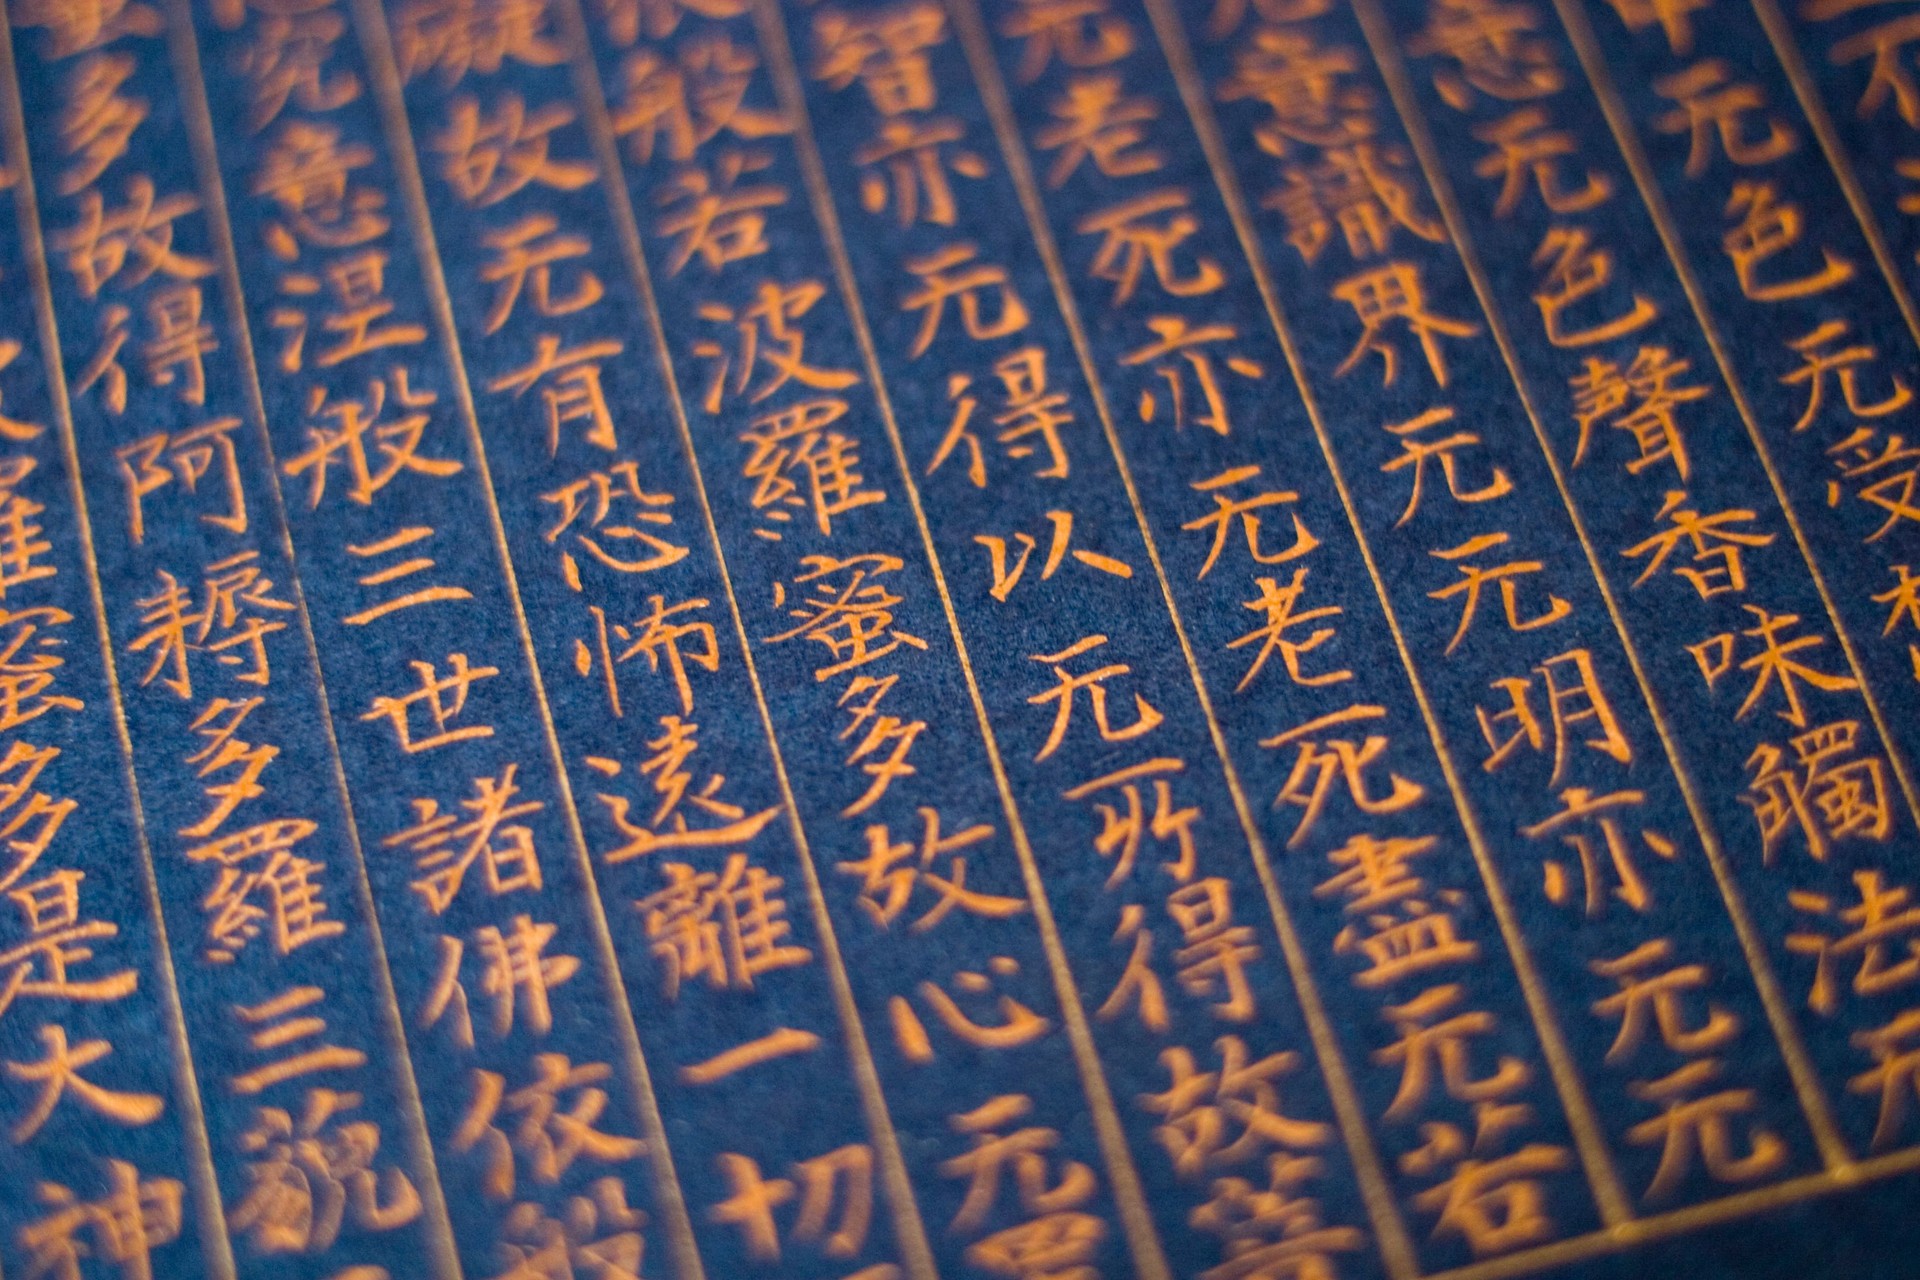 不
中无色无受想
意无色聲香味觸法无
无意識界无无明亦无无
无老死亦无老死盡无苦
智亦无得以无所得故菩
般若波羅蜜多故心无罣
礙故无有恐怖遠離一切
究意涅般三世諸佛依般
蜜多故得阿耨多羅三藐
羅蜜多是大神